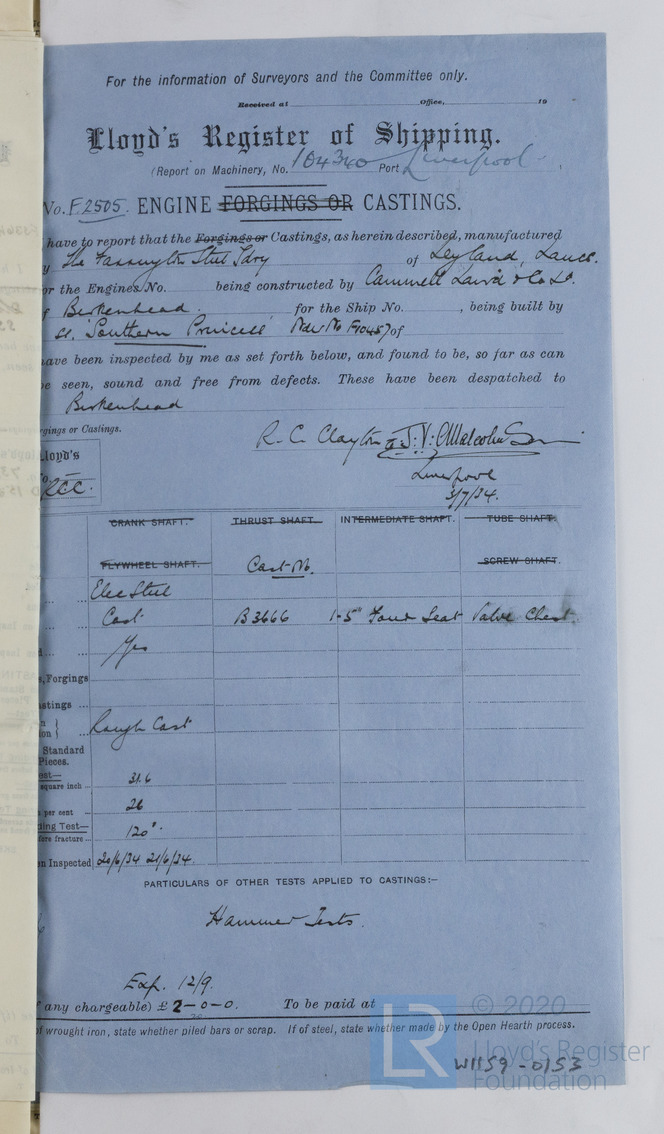 For the information of Surveyors and the Committee only.
Received at Office, 19
Lloyd's Register of Shipping.
(Report on Machinery, No. 104340 Port Liverpool
No. F.2505. ENGINE FORGINGS OR CASTINGS.
have to report that the Forgings or Castings, as herein described, manufactured
y The Farington Steel Fdry of Leyland, Lancs.
or the Engines No. being constructed by Cammell Laird & Co Ld.
f Birkenhead. for the Ship No. , being built by
"Southern Princess" of
ave been inspected by me as set forth below, and found to be, so far as can
e seen, sound and free from defects. These have been despatched to
Birkenhead
rgings or Castings.
R. C. Clayton & J. V. Malcolm
loyd's
Liverpool
RCC.
3/7/34.
CRANK SHAFT. THRUST SHAFT. INTERMEDIATE SHAFT. TUBE SHAFT.
FLYWHEEL SHAFT. Cast No. SCREW SHAFT.
Elec Steel
Cast B3666 1-5" Four Seat Valve Chest
Yes
, Forgings
stings
n
on Rough Cast
Standard
Pieces.
est—
square inch 31.6
per cent 26
ding Test—
fore fracture 120°.
n Inspected 20/6/34 21/6/34.
PARTICULARS OF OTHER TESTS APPLIED TO CASTINGS:—
Hammer Tests.
Exp. 12/9.
any chargeable) £ 2-0-0. To be paid at
f wrought iron, state whether piled bars or scrap. If of steel, state whether made by the Open Hearth process.
© 2020
LR Lloyd's Register
Foundation
W1159-0153